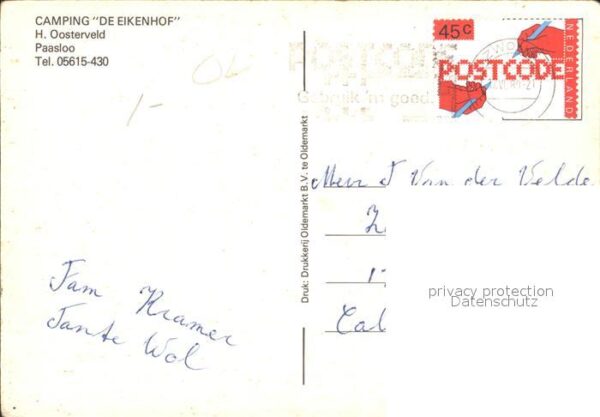 CAMPING "DE EIKENHOF"
H. Oosterveld
Paasloo
Tel. 05615-430
OL
1-
POSTCODE
Gebruik 'm goed.
45c
POSTCODE
NEDERLAND
Druk: Drukkerij Oldemarkt B.V. te Oldemarkt
J Van der Velde
privacy protection
Datenschutz
Fam Kramer
Tante Wol